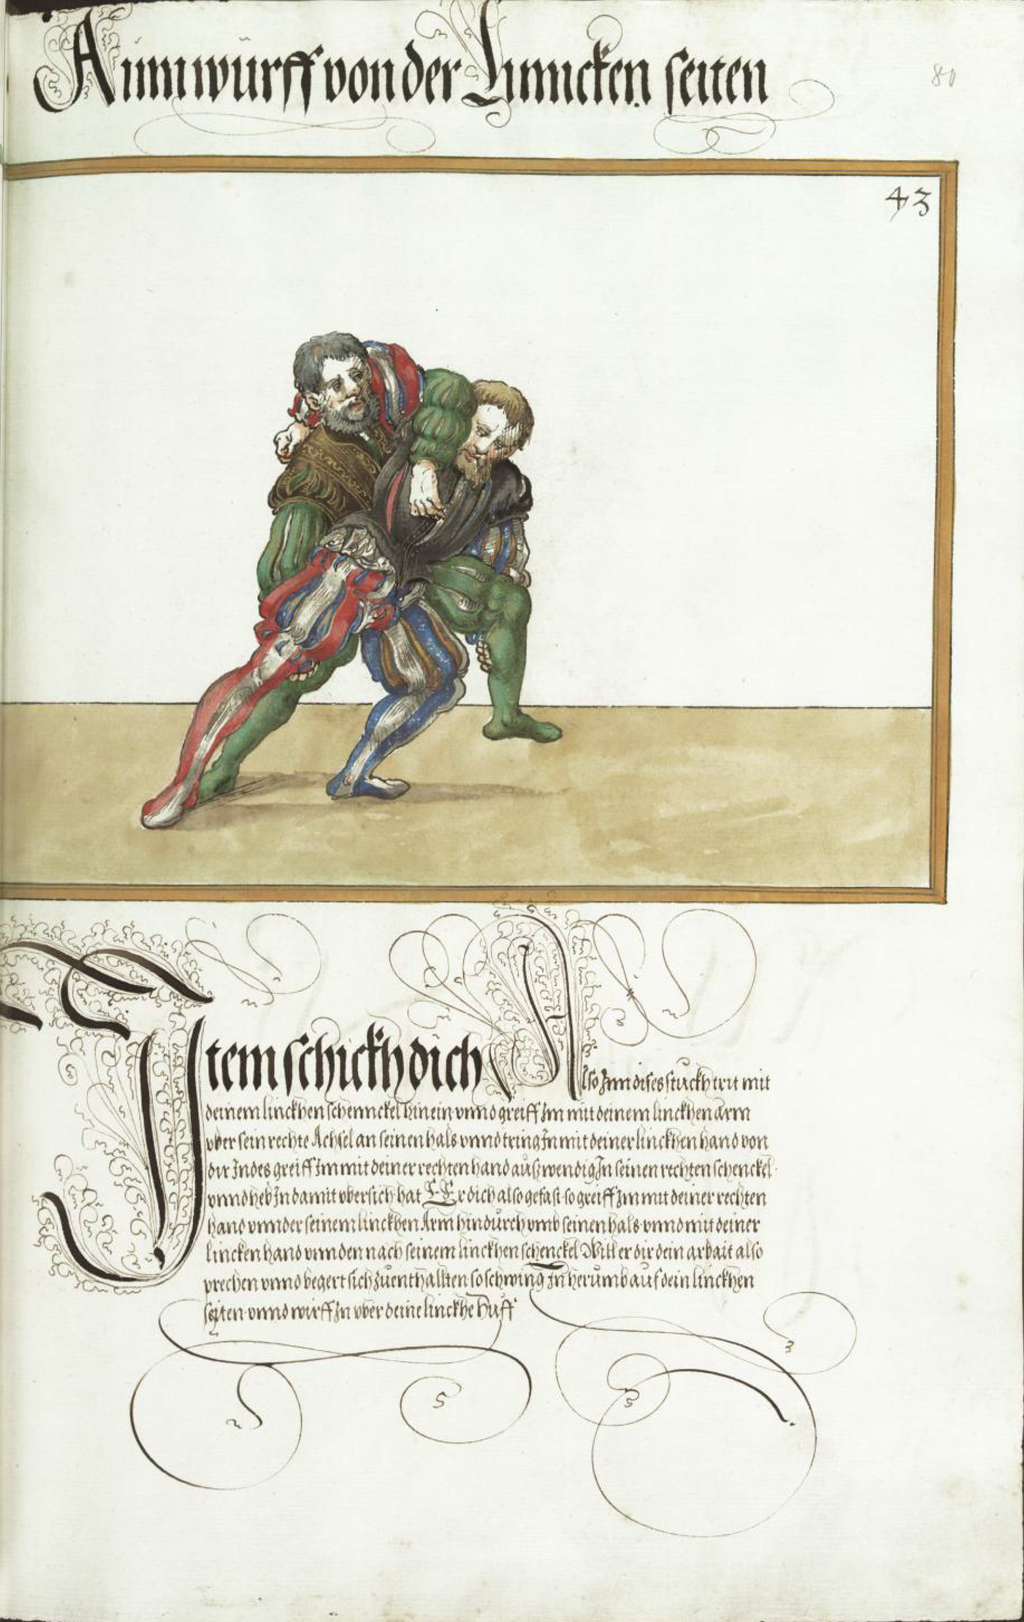 Ainn würff von der Linncken seiten
80
43
Item schickh dich Also Jnn dises stuckh trit mit
deinem linckhen schennckel hinein vnnd greiff Im mit deinem linckhen Arm
vber sein rechte Achsel an seinen hals vnnd tring In mit deiner linckhen hand von
dir Indes greiff Im mit deiner rechten hand auszwendig In seinen rechten schenckel
vnnd heb In damit vbersich hat Er dich also gefast so greiff Im mit deiner rechten
hand vnnder seinem linckhen Arm hindurch vmb seinen hals vnnd mit deiner
lincken hand vnnden nach seinem linckhen schenckel Will er dir dein arbait also
prechen vnnd begert sich zu enthallten so schwing In herumb auf dein linckhen
seyten vnnd wirff In vber deine linckhe Huff